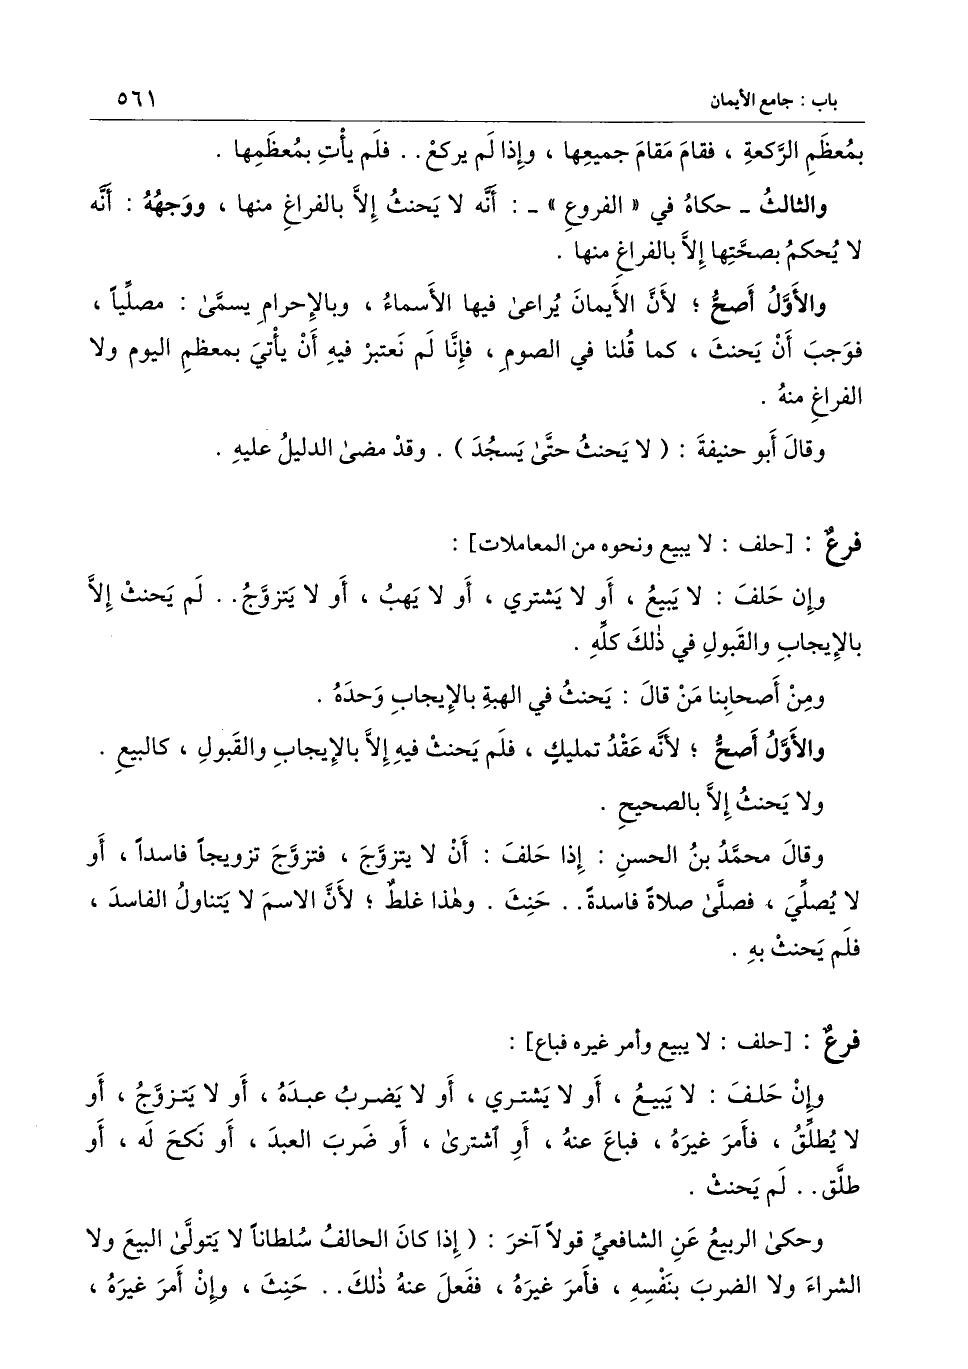 باب : جامع الأيمان ٥٦١
بمُعظَمِ الرَّكعةِ ، فقامَ مَقامَ جميعِها ، وإِذا لَم يركعْ . . فلَم يأْتِ بمُعظَمِها .
والثالثُ ـ حكاهُ في « الفروعِ » ـ : أَنَّه لا يَحنثُ إِلاَّ بالفراغِ منها ، ووَجهُهُ : أَنَّه
لا يُحكمُ بصحَّتِها إِلاَّ بالفراغِ منها .
والأَوَّلُ أَصحُّ ؛ لأَنَّ الأَيمانَ يُراعىٰ فيها الأَسماءُ ، وبالإِحرامِ يسمَّىٰ : مصلِّياً ،
فوَجبَ أَنْ يَحنثَ ، كما قُلنا في الصومِ ، فإِنَّا لَم نَعتبرْ فيهِ أَنْ يأْتيَ بمعظمِ اليوم ولا
الفراغِ منهُ .
وقالَ أَبو حنيفةَ : ( لا يَحنثُ حتَّىٰ يَسجُدَ ) . وقدْ مضىٰ الدليلُ عليهِ .
فرعٌ : [حلف : لا يبيع ونحوه من المعاملات] :
وإِن حَلفَ : لا يَبيعُ ، أَو لا يَشتري ، أَو لا يَهبُ ، أَو لا يَتزوَّجُ . . لَم يَحنثْ إِلاَّ
بالإِيجابِ والقَبولِ في ذٰلكَ كلِّهِ .
ومِنْ أَصحابِنا مَنْ قالَ : يَحنثُ في الهبةِ بالإِيجابِ وَحدَهُ .
والأَوَّلُ أَصحُّ ؛ لأَنَّه عَقْدُ تمليكٍ ، فلَم يَحنثْ فيهِ إِلاَّ بالإِيجابِ والقَبولِ ، كالبيعِ .
ولا يَحنثُ إِلاَّ بالصحيحِ .
وقالَ محمَّدُ بنُ الحسنِ : إِذا حَلفَ : أَنْ لا يتزوَّجَ ، فتزوَّجَ تزويجاً فاسداً ، أَو
لا يُصلِّيَ ، فصلَّىٰ صلاةً فاسدةً . . حَنِثَ . وهٰذا غلطٌ ؛ لأَنَّ الاسمَ لا يَتناولُ الفاسدَ ،
فلَم يَحنثْ بهِ .
فرعٌ : [حلف : لا يبيع وأمر غيره فباع] :
وإِنْ حَلفَ : لا يَبيعُ ، أَو لا يَشتري ، أَو لا يَضربُ عبدَهُ ، أَو لا يَتزوَّجُ ، أَو
لا يُطلِّقُ ، فأَمرَ غيرَهُ ، فباعَ عنهُ ، أَوِ ٱشترىٰ ، أَو ضَربَ العبدَ ، أَو نَكحَ لَه ، أَو
طلَّق . . لَم يَحنثْ .
وحكىٰ الربيعُ عَنِ الشافعيِّ قولاً آخرَ : ( إِذا كانَ الحالفُ سُلطاناً لا يَتولَّىٰ البيعَ ولا
الشراءَ ولا الضربَ بنَفْسِهِ ، فأَمرَ غيرَهُ ، ففَعلَ عنهُ ذٰلكَ . . حَنِثَ ، وإِنْ أَمرَ غيرَهُ ،